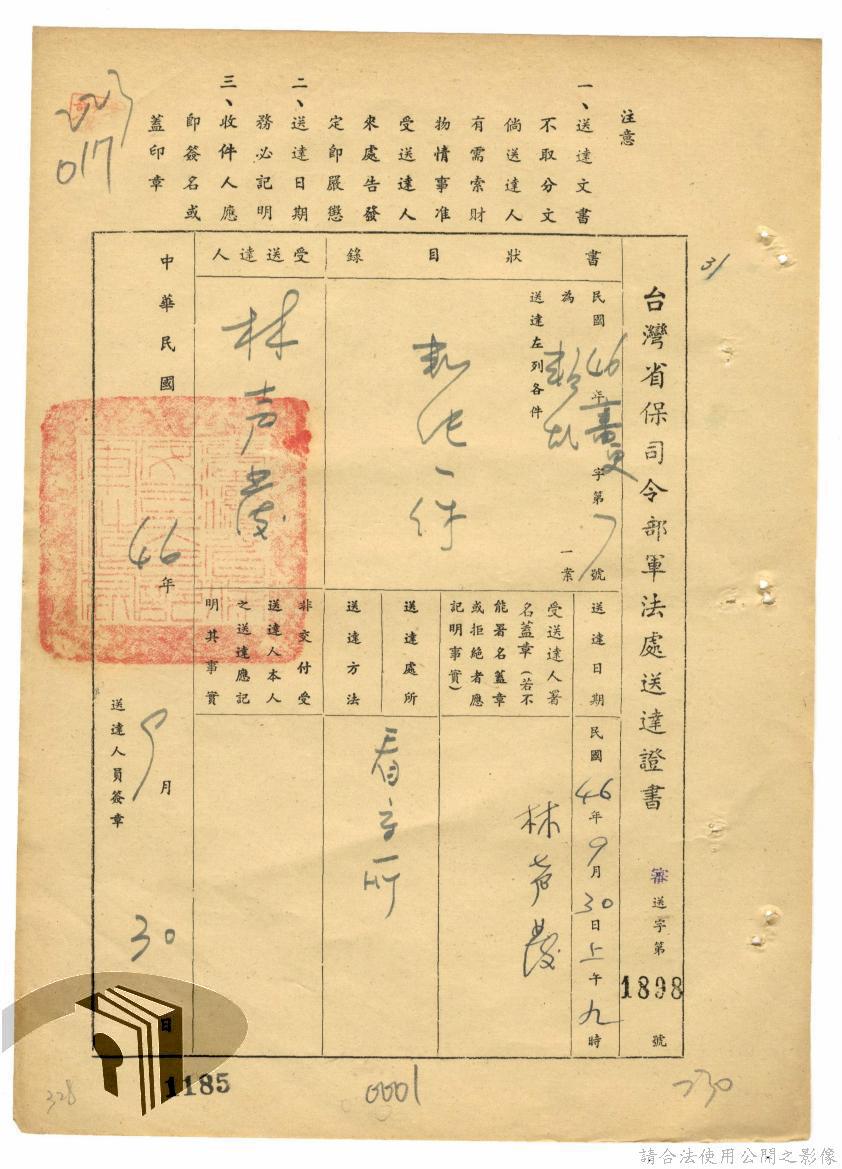 注意
一、送達文書
不取分文
倘送達人
有需索財
物情事准
受送達人
來處告發
定即嚴懲
二、送達日期
務必記明
三、收件人應
即簽名或
蓋印章
223
017
31
台灣省保司令部軍法處送達證書
審送字第1898號
書狀目錄
民國46年字第7號
為叛亂一案
送達左列各件
一件
受送達人
林声發
送達日期
民國46年9月30日上午九時
受送達人署
名蓋章(若不
能署名蓋章
或拒絕者應
記明事實)
林声發
送達處所
看守所
送達方法
非交付受
送達人本人
之送達應記
明其事實
中華民國46年9月30日
送達人員簽章
328
1185
0001
230
請合法使用公開之影像